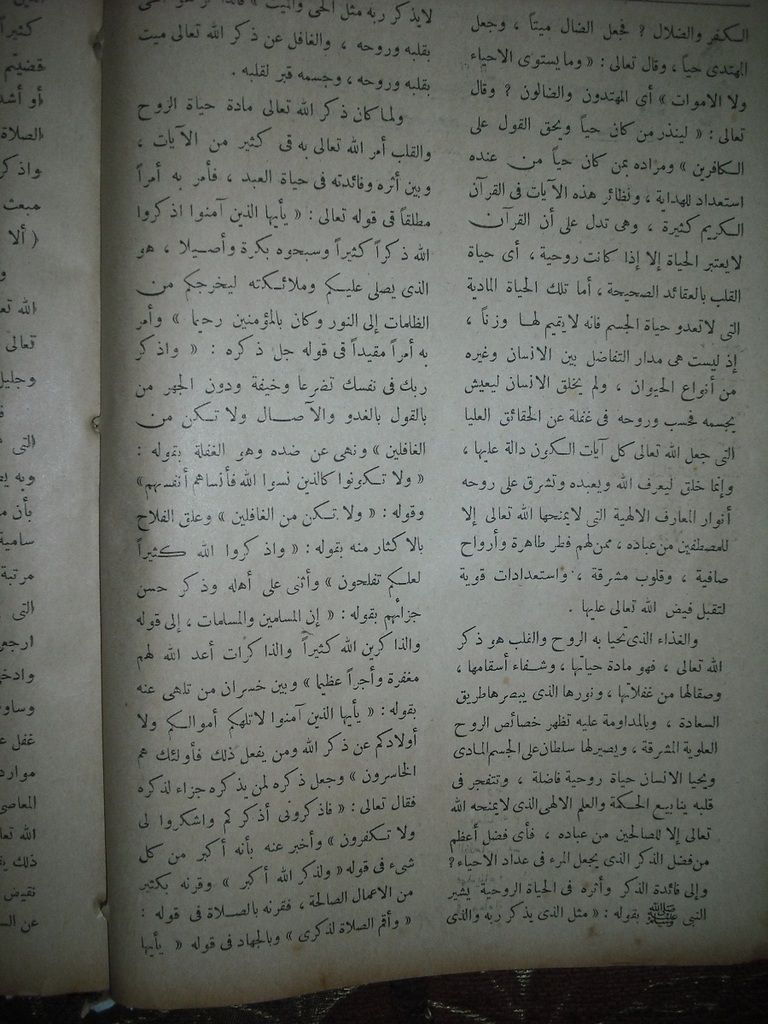 الكفر والضلال ؟ فجعل الضال ميتاً ، وجعل
المهتدى حياً ، وقال تعالى : « وما يستوى الاحياء
ولا الاموات » أى المهتدون والضالون ؟ وقال
تعالى : « لينذر من كان حياً ويحق القول على
الكافرين » ومراده بمن كان حياً من عنده
استعداد للهداية ، ونظائر هذه الآيات فى القرآن
الكريم كثيرة ، وهى تدل على أن القرآن
لا يعتبر الحياة إلا إذا كانت روحية ، أى حياة
القلب بالعقائد الصحيحة ، أما تلك الحياة المادية
التى لا تعدو حياة الجسم فانه لا يقيم لها وزناً ،
إذ ليست هى مدار التفاضل بين الانسان وغيره
من أنواع الحيوان ، ولم يخلق الانسان ليعيش
بجسمه فحسب وروحه فى غفلة عن الحقائق العليا
التى جعل الله تعالى كل آيات الكون دالة عليها ،
وإنما خلق ليعرف الله ويعبده وتشرق على روحه
أنوار المعارف الالهية التى لا يمنحها الله تعالى إلا
للمصطفين من عباده ، ممن لهم فطر طاهرة وأرواح
صافية ، وقلوب مشرقة ، واستعدادات قوية
لتقبل فيض الله تعالى عليها .
والغذاء الذى تحيا به الروح والقلب هو ذكر
الله تعالى ، فهو مادة حياتها ، وشفاء أسقامها ،
وصقالها من غفلاتها ، ونورها الذى يبصرها طريق
السعادة ، وبالمداومة عليه تظهر خصائص الروح
العلوية المشرقة ، ويصير لها سلطان على الجسم المادى
ويحيا الانسان حياة روحية فاضلة ، وتتفجر فى
قلبه ينابيع الحكمة والعلم الالهى الذى لا يمنحه الله
تعالى إلا للصالحين من عباده ، فأى فضل أعظم
من فضل الذكر الذى يجعل المرء فى عداد الاحياء ؟
وإلى فائدة الذكر وأثره فى الحياة الروحية يشير
النبى ﷺ بقوله : « مثل الذى يذكر ربه والذى
لا يذكر ربه مثل الحى والميت »
بقلبه وروحه ، والغافل عن ذكر الله تعالى ميت
بقلبه وروحه ، وجسمه قبر لقلبه .
ولما كان ذكر الله تعالى مادة حياة الروح
والقلب أمر الله تعالى به فى كثير من الآيات ،
وبين أثره وفائدته فى حياة العبد ، فأمر به أمراً
مطلقاً فى قوله تعالى : « يأيها الذين آمنوا اذكروا
الله ذكراً كثيراً وسبحوه بكرة وأصيلا ، هو
الذى يصلى عليكم وملائكته ليخرجكم من
الظلمات إلى النور وكان بالمؤمنين رحيما » وأمر
به أمراً مقيداً فى قوله جل ذكره : « واذكر
ربك فى نفسك تضرعا وخيفة ودون الجهر من
بالقول بالغدو والآصال ولا تكن من
الغافلين » ونهى عن ضده وهو الغفلة بقوله :
« ولا تكونوا كالذين نسوا الله فأنساهم أنفسهم »
وقوله : « ولا تكن من الغافلين » وعلق الفلاح
بالاكثار منه بقوله : « واذكروا الله كثيراً
لعلكم تفلحون » وأثنى على أهله وذكر حسن
جزائهم بقوله : « إن المسلمين والمسلمات ، إلى قوله
والذاكرين الله كثيراً والذاكرات أعد الله لهم
مغفرة وأجراً عظيما » وبين خسران من تلهى عنه
بقوله : « يأيها الذين آمنوا لا تلهكم أموالكم ولا
أولادكم عن ذكر الله ومن يفعل ذلك فأولئك هم
الخاسرون » وجعل ذكره لمن يذكره جزاء لذكره
فقال تعالى : « فاذكرونى أذكركم واشكروا لى
ولا تكفرون » وأخبر عنه بأنه أكبر من كل
شىء فى قوله « ولذكر الله أكبر » وقرنه بكثير
من الاعمال الصالحة ، فقرنه بالصلاة فى قوله :
« وأقم الصلاة لذكرى » وبالجهاد فى قوله « يأيها
كثيراً
أو أشد
الصلاة
واذكر
مبعث
( ألا
الله تعا
تعالى
وجليل
التى
وبه يص
بأن م
سامية
مرتبة
التى
ارجع
وادخ
وساو
غفل ع
موارد
المعاصى
الله تعا
ذلك ية
نقيض
عن الـ